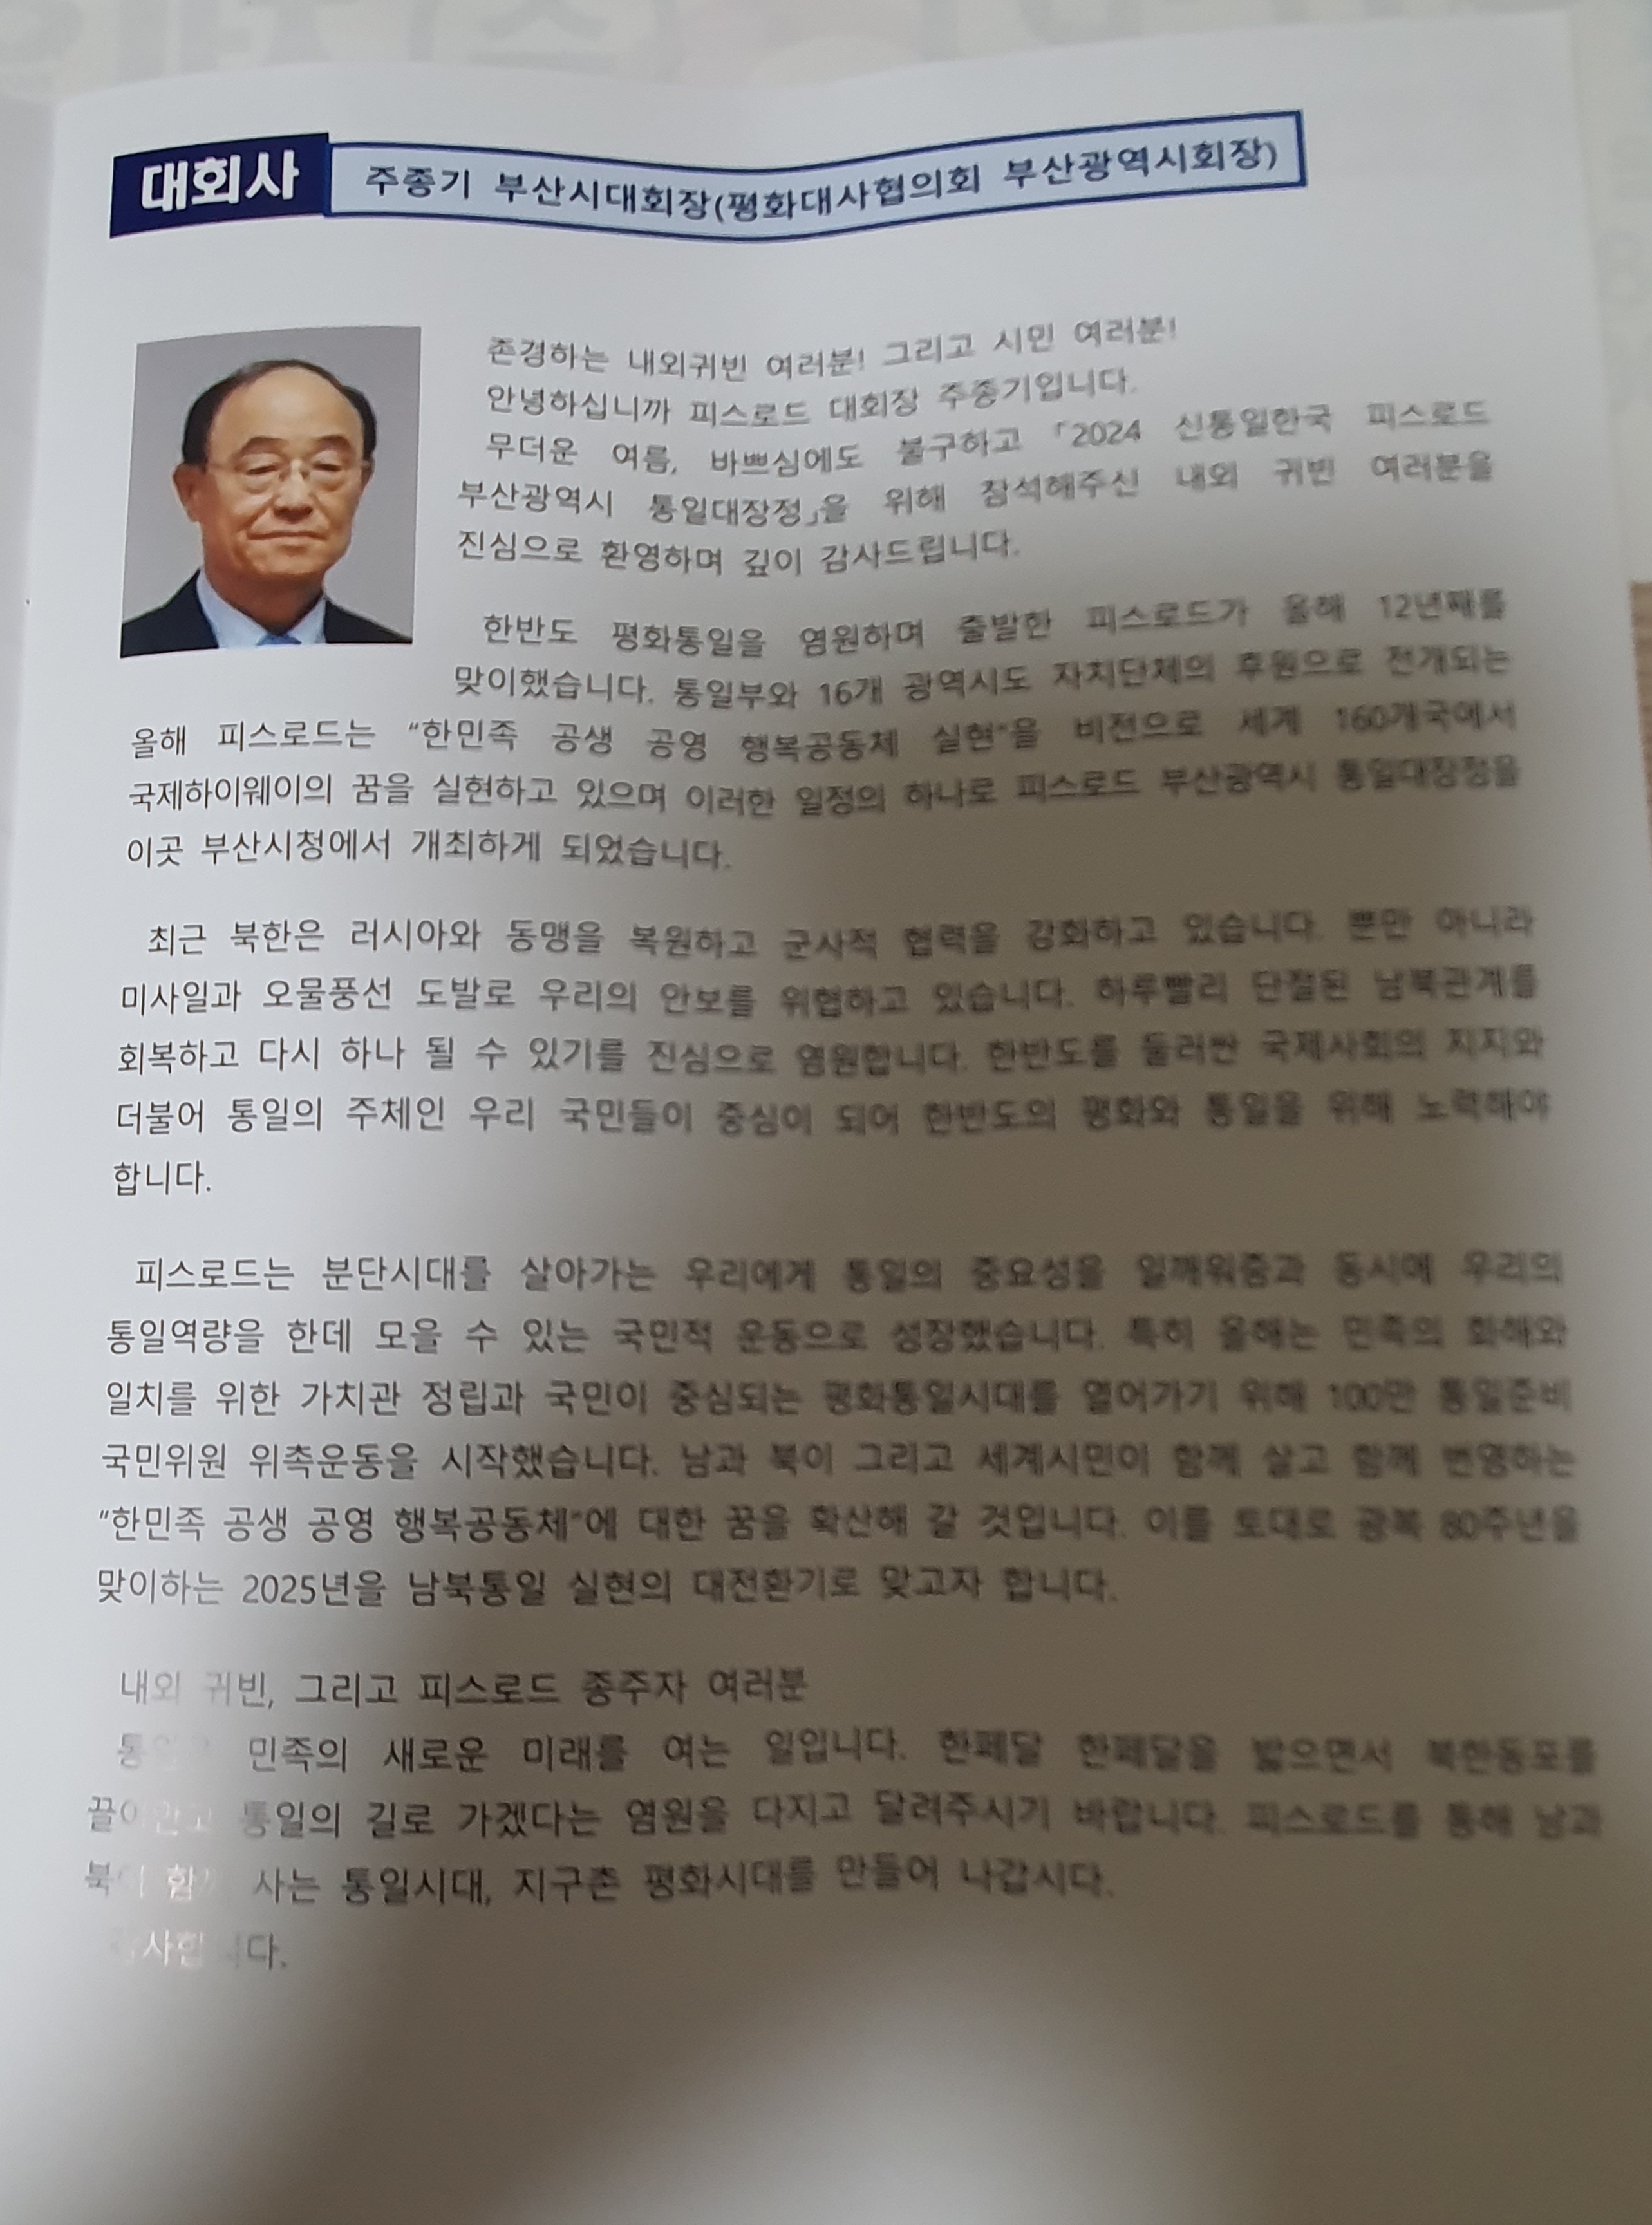 대회사 주종기 부산시대회장(평화대사협의회 부산광역시회장)
존경하는 내외귀빈 여러분! 그리고 시민 여러분!
안녕하십니까 피스로드 대회장 주종기입니다.
무더운 여름, 바쁘심에도 불구하고 「2024 신통일한국 피스로드
부산광역시 통일대장정」을 위해 참석해주신 내외 귀빈 여러분을
진심으로 환영하며 깊이 감사드립니다.
한반도 평화통일을 염원하며 출발한 피스로드가 올해 12년째를
맞이했습니다. 통일부와 16개 광역시도 자치단체의 후원으로 전개되는
올해 피스로드는 “한민족 공생 공영 행복공동체 실현”을 비전으로 세계 160개국에서
국제하이웨이의 꿈을 실현하고 있으며 이러한 일정의 하나로 피스로드 부산광역시 통일대장정을
이곳 부산시청에서 개최하게 되었습니다.
최근 북한은 러시아와 동맹을 복원하고 군사적 협력을 강화하고 있습니다. 뿐만 아니라
미사일과 오물풍선 도발로 우리의 안보를 위협하고 있습니다. 하루빨리 단절된 남북관계를
회복하고 다시 하나 될 수 있기를 진심으로 염원합니다. 한반도를 둘러싼 국제사회의 지지와
더불어 통일의 주체인 우리 국민들이 중심이 되어 한반도의 평화와 통일을 위해 노력해야
합니다.
피스로드는 분단시대를 살아가는 우리에게 통일의 중요성을 일깨워줌과 동시에 우리의
통일역량을 한데 모을 수 있는 국민적 운동으로 성장했습니다. 특히 올해는 민족의 화해와
일치를 위한 가치관 정립과 국민이 중심되는 평화통일시대를 열어가기 위해 100만 통일준비
국민위원 위촉운동을 시작했습니다. 남과 북이 그리고 세계시민이 함께 살고 함께 번영하는
“한민족 공생 공영 행복공동체”에 대한 꿈을 확산해 갈 것입니다. 이를 토대로 광복 80주년을
맞이하는 2025년을 남북통일 실현의 대전환기로 맞고자 합니다.
내외 귀빈, 그리고 피스로드 종주자 여러분
민족의 새로운 미래를 여는 일입니다. 한페달 한페달을 밟으면서 북한동포를
통일의 길로 가겠다는 염원을 다지고 달려주시기 바랍니다. 피스로드를 통해 남과
사는 통일시대, 지구촌 평화시대를 만들어 나갑시다.